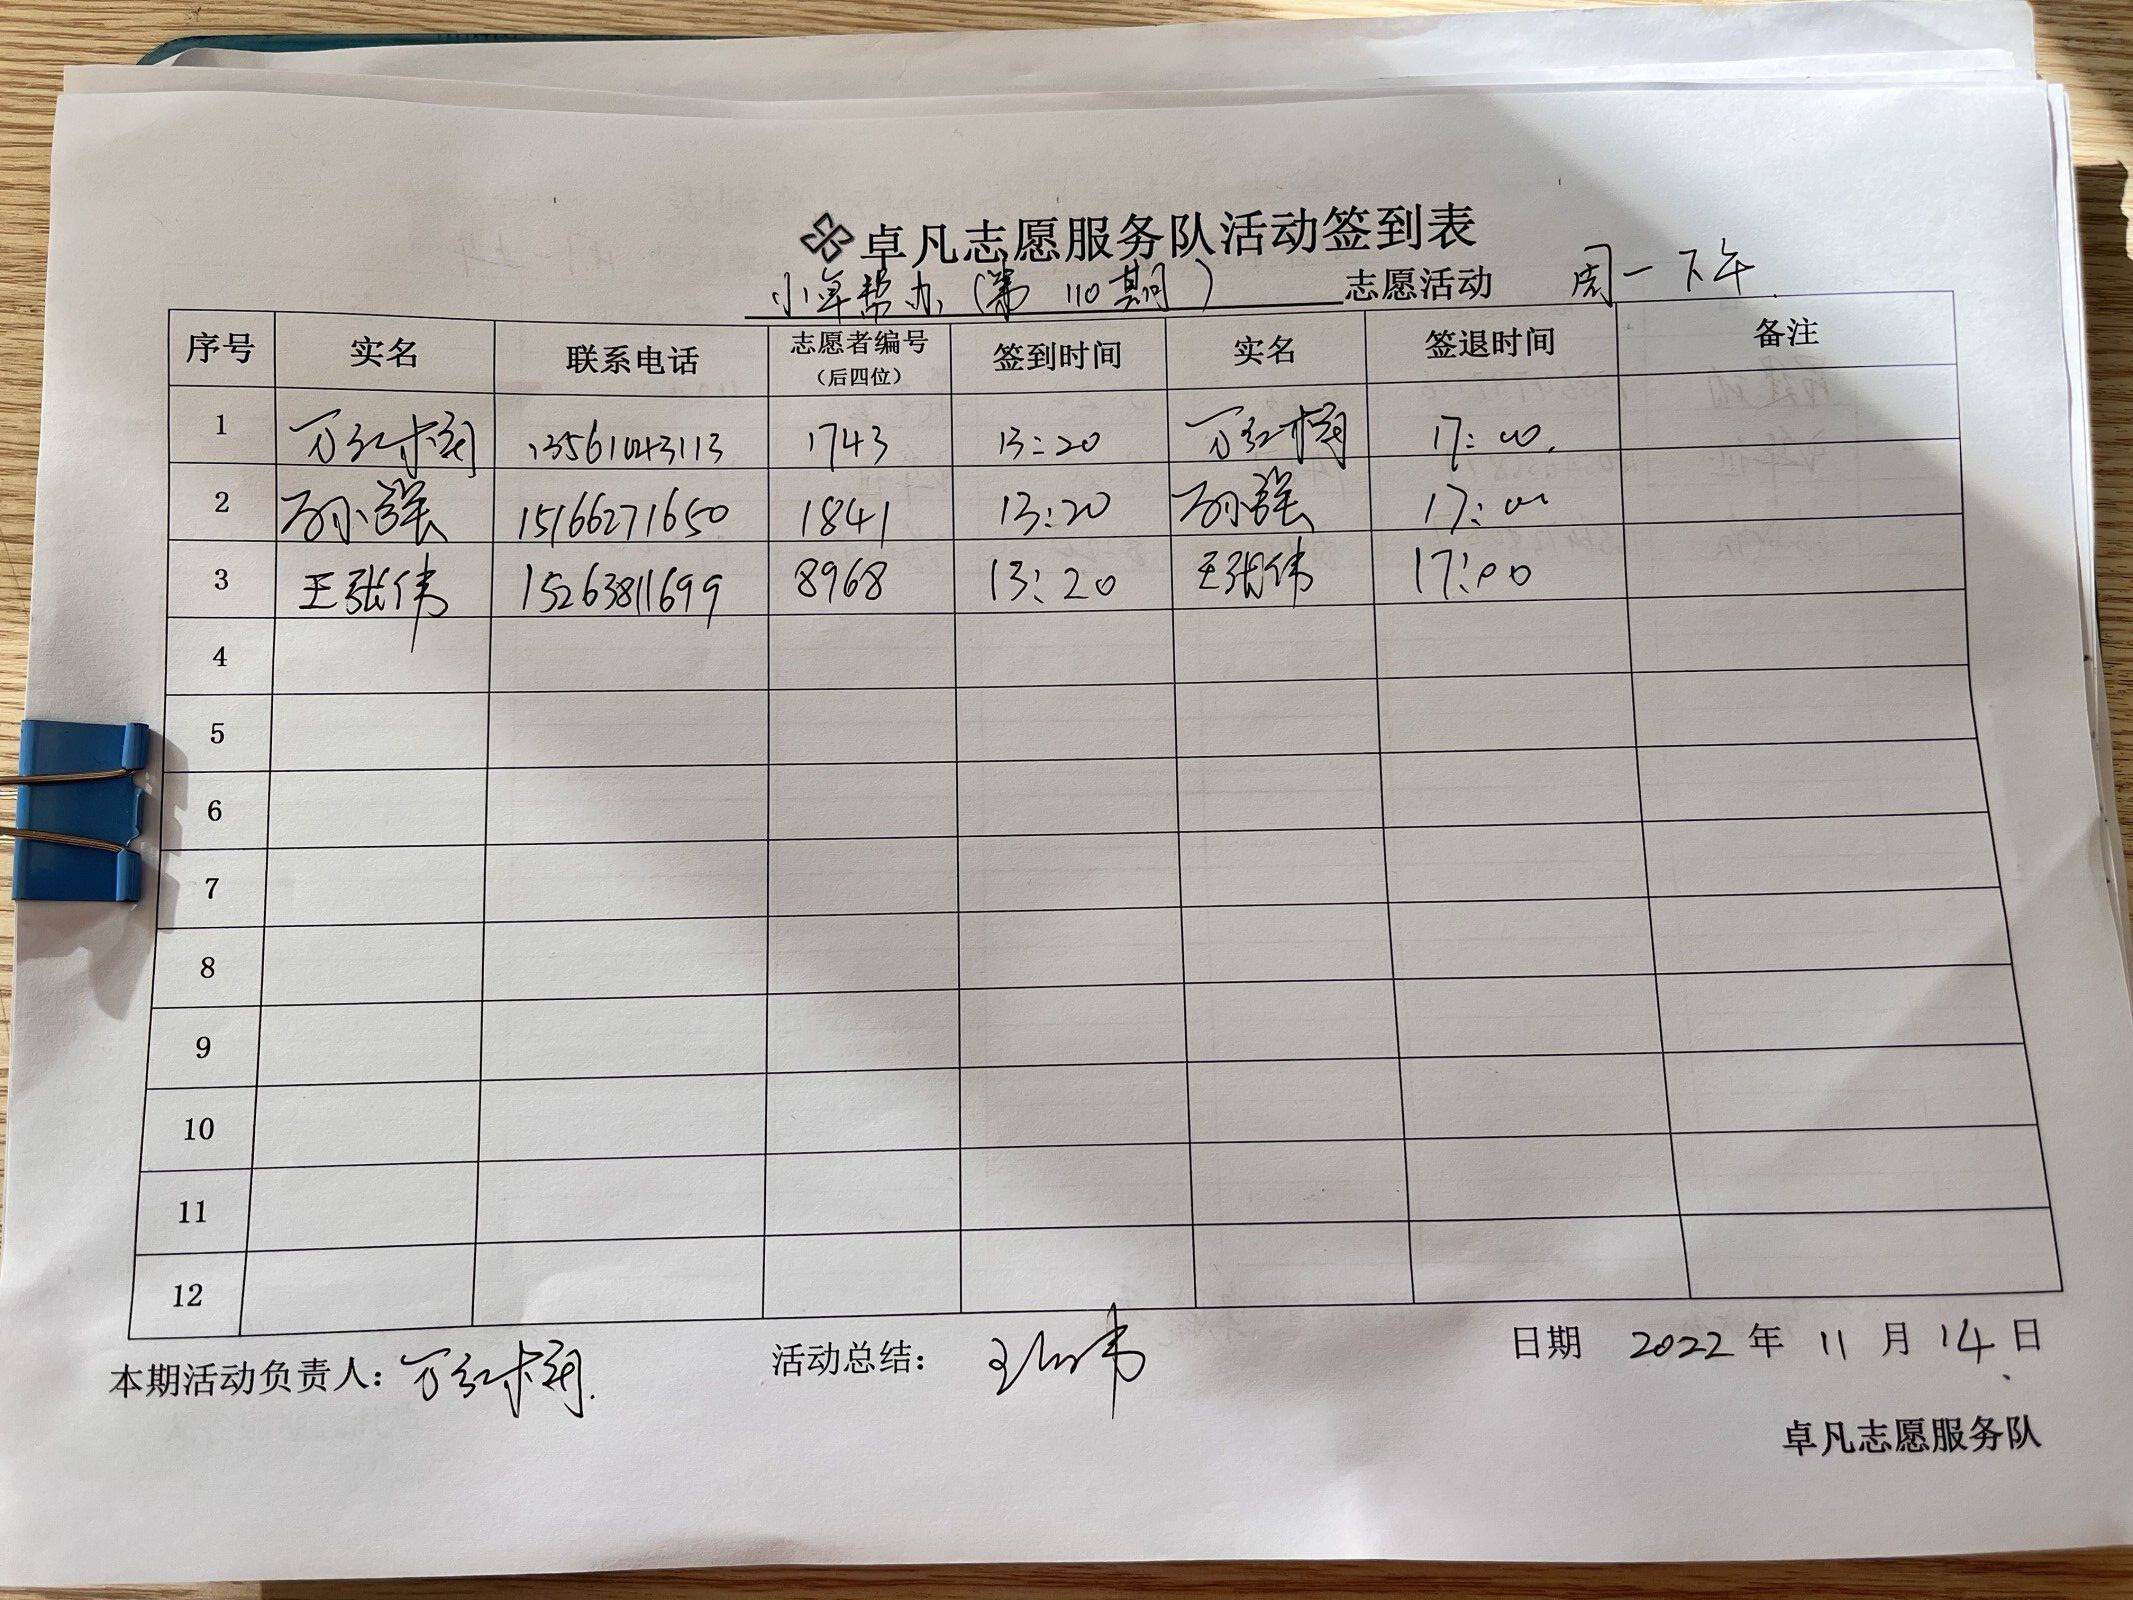 卓凡志愿服务队活动签到表
小卓帮办(第 110期) 志愿活动 周一下午
序号 实名 联系电话 志愿者编号(后四位) 签到时间 实名 签退时间 备注
1 13561043113 1743 13:20 17:00
2 孙强 15166271650 1841 13:20 孙强 17:00
3 王张伟 15263811699 8968 13:20 王张伟 17:00
4
5
6
7
8
9
10
11
12
本期活动负责人: 活动总结: 日期 2022年11月14日
卓凡志愿服务队